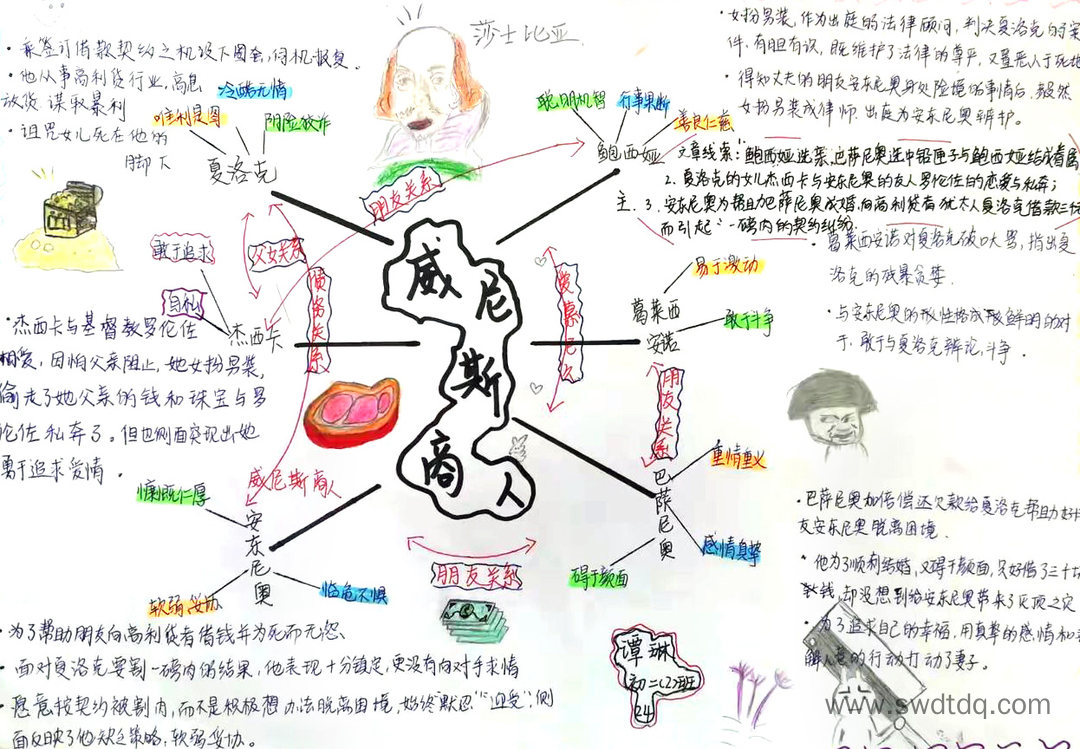 莎士比亚
·乘签订借款契约之机设下圈套,伺机报复。
·他从事高利贷行业,高息
放货 谋取暴利
·诅咒女儿死在他的
脚下
冷酷无情
唯利是图
阴险狡诈
夏洛克
聪明机智
行事果断
善良仁慈
鲍西娅
·女扮男装,作为出庭的法律顾问,判决夏洛克的案
件,有胆有识,既维护了法律的尊严,又置恶人于死地
·得知丈夫的朋友安东尼奥身处险境的事情后,毅然
女扮男装成律师 出庭为安东尼奥辩护。
文章线索:鲍西娅选亲,巴萨尼奥选中铅匣子与鲍西娅结成眷属
2.夏洛克的女儿杰西卡与安东尼奥的友人罗伦佐的恋爱与私奔;
主.3.安东尼奥为帮助巴萨尼奥成婚,向高利贷者犹太人夏洛克借款三
而引起"一磅肉的契约纠纷
朋友关系
父女关系
债务关系
敢于追求
自私
杰西卡
·杰西卡与基督教罗伦佐
相爱,因怕父亲阻止,她女扮男装,
偷走了她父亲的钱和珠宝与罗
伦佐私奔了。但也侧面突现出她
勇于追求爱情。
威尼斯商人
威尼斯商人
易于激动
敢于斗争
葛莱西
安诺
·葛莱西安诺对夏洛克破口大骂,指出夏
洛克的残暴贪婪
·与安东尼奥的性格成鲜明的对
于,敢于与夏洛克辩论,斗争.
朋友关系
重情重义
感情真挚
碍于颜面
巴萨尼奥
·巴萨尼奥加倍偿还欠款给夏洛克帮助
友安东尼奥脱离困境.
·他为了顺利结婚,又碍于颜面,只好借了三千
钱,却没想到给安东尼奥带来了灭顶之灾
·为了追求自己的幸福,用真挚的感情和
解人意的行动打动了妻子。
慷慨仁厚
安东尼奥
软弱妥协
临危不惧
朋友关系
·为了帮助朋友向高利贷者借钱并为死而无怨、
·面对夏洛克要割一磅肉的结果,他表现十分镇定,更没有向对手求情
·愿意按契约被割肉,而不是积极想办法脱离困境,始终"默忍""迎受";侧
面反映了他缺乏策略,软弱妥协。
谭琳
初二(2)班
24
www.swdtdq.com